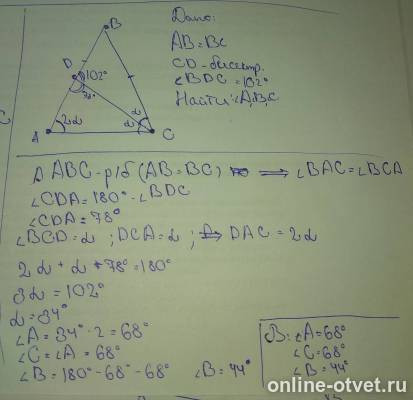 B
D
102°
78°
2α
α
α
A
C
Дано:
AB=BC
CD-биссектр.
∠BDC=102°
Найти:∠A,B,C
Δ ABC-р/б (AB=BC) ⟹ ∠BAC=∠BCA
∠CDA=180°-∠BDC
∠CDA=78°
∠BCD=α ; DCA=α ; ⟹ DAC=2α
2α + α +78°=180°
3α=102°
α=34°
∠A= 34°·2=68°
∠C=∠A=68°
∠B=180°-68°-68° ∠B=44°
∠A=68°
∠C=68°
∠B=44°
online-otvet.ru